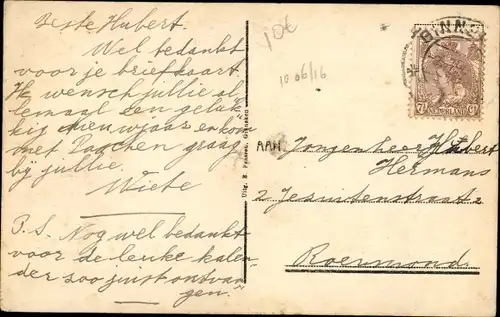 Beste Hubert.
Wel bedankt
voor je briefkaart.
Ik wensch jullie al
lemaal een geluk"
kig nieuwjaar en kom
met Paschen graag
bij jullie.
Wiete
P.S. Nog wel bedankt
voor de leuke kalen"
der zoo juist ontvan"
gen."
10€
10 06/16
Uitg. B.
BINN
NEDERLAND
7½ Ct
AAN Jongenheer Hubert
Hermans
2 Jesuitenstraat 2
Roermond